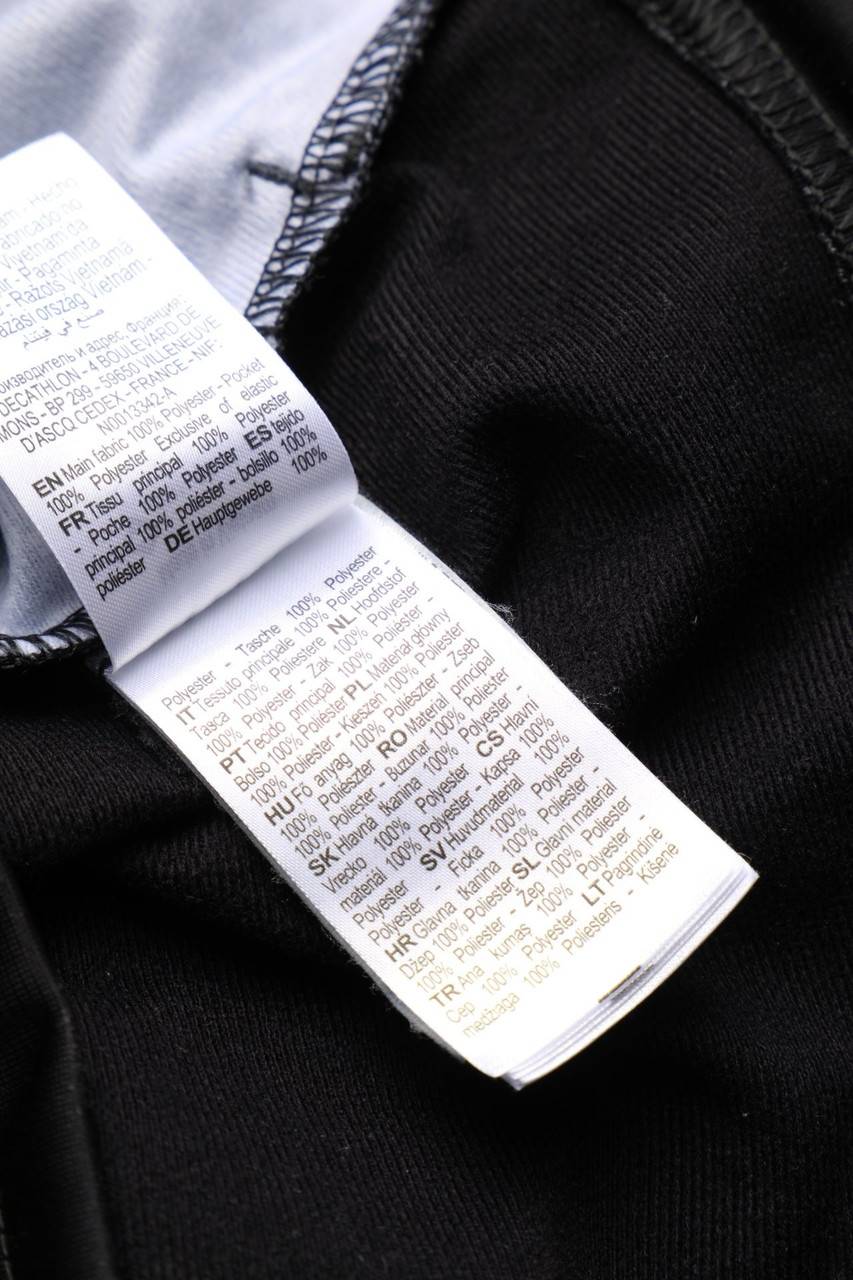 am - Hecho
abricado no
Vijetnam'da
- Pagaminta
- Ražots Vietnamā
azási ország Vietnam -
صنع في فيتنام
оизводитель и адрес, Франция:
DECATHLON - 4 BOULEVARD DE
MONS - BP 299 - 59650 VILLENEUVE
D'ASCQ CEDEX - FRANCE - NIF:
N0013342-A
EN Main fabric 100% Polyester - Pocket
100% Polyester Exclusive of elastic
FR Tissu principal 100% Polyester
- Poche 100% Polyester ES tejido
principal 100% poliéster - bolsillo 100%
poliéster DE Hauptgewebe 100%
Polyester - Tasche 100% Polyester
IT Tessuto principale 100% Poliestere -
Tasca 100% Poliestere NL Hoofdstof
100% Polyester - Zak 100% Polyester
PT Tecido principal 100% Poliéster -
Bolso 100% Poliéster PL Materiał główny
100% Poliester - Kieszeń 100% Poliester
HU Fő anyag 100% Poliészter - Zseb
100% Poliészter RO Material principal
100% Poliester - Buzunar 100% Poliester
SK Hlavná tkanina 100% Polyester -
Vrecko 100% Polyester CS Hlavní
materiál 100% Polyester - Kapsa 100%
Polyester SV Huvudmaterial 100%
Polyester - Ficka 100% Polyester
HR Glavna tkanina 100% Poliester -
Džep 100% Poliester SL Glavni material
100% Poliester - Žep 100% Poliester
TR Ana kumaş 100% Polyester -
Cep 100% Polyester LT Pagrindinė
medžiaga 100% Poliesteris - Kišenė